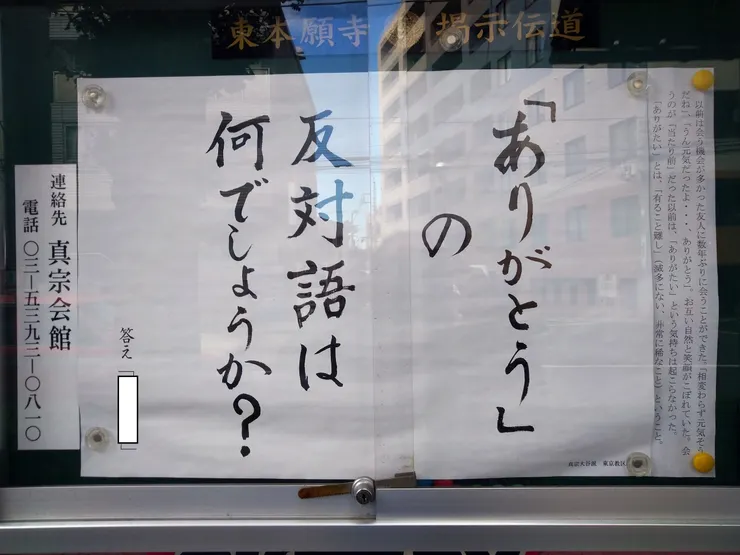 東本願寺 掲示伝道
以前は会う機会が多かった友人に数年ぶりに会うことができた。「相変わらず元気そう
だね」「うん元気だったよ・・・ありがとう」。お互い自然と笑顔がこぼれていた。会
うのが「当たり前」だった以前は、「ありがたい」という気持ちは起こらなかった。
「ありがたい」とは、「有ること難し」(滅多にない、非常に稀なこと)ということ。
真宗大谷派 東京教区
「ありがとう」
の
反対語は
何でしょうか?
答え「 」
連絡先 真宗会館
電話 〇三―五三九三―〇八一〇